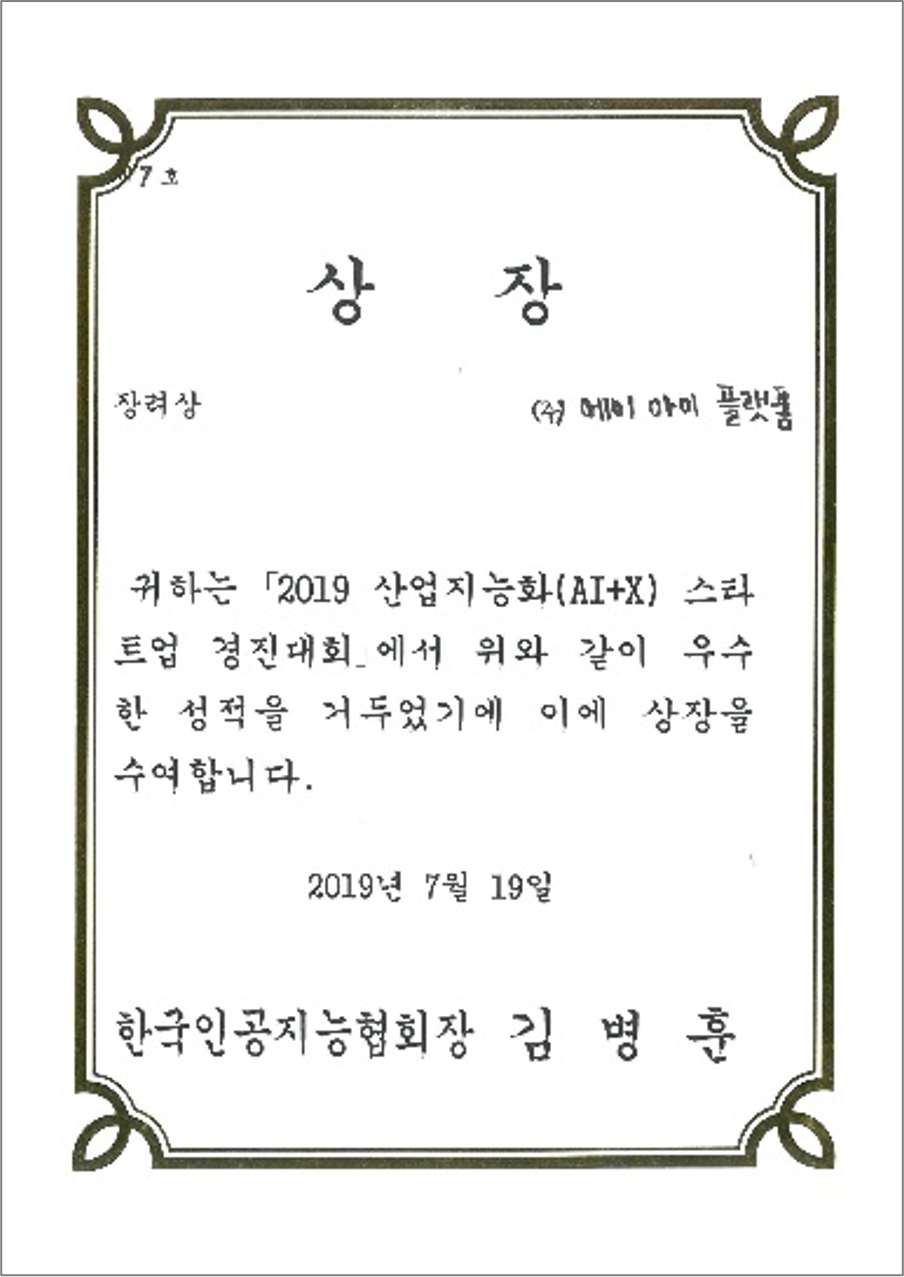 7 호
상 장
장려상 (주) 에이 아이 플랫폼
귀하는 「2019 산업지능화(AI+X) 스타
트업 경진대회」에서 위와 같이 우수
한 성적을 거두었기에 이에 상장을
수여합니다.
2019년 7월 19일
한국인공지능협회장 김 병 훈